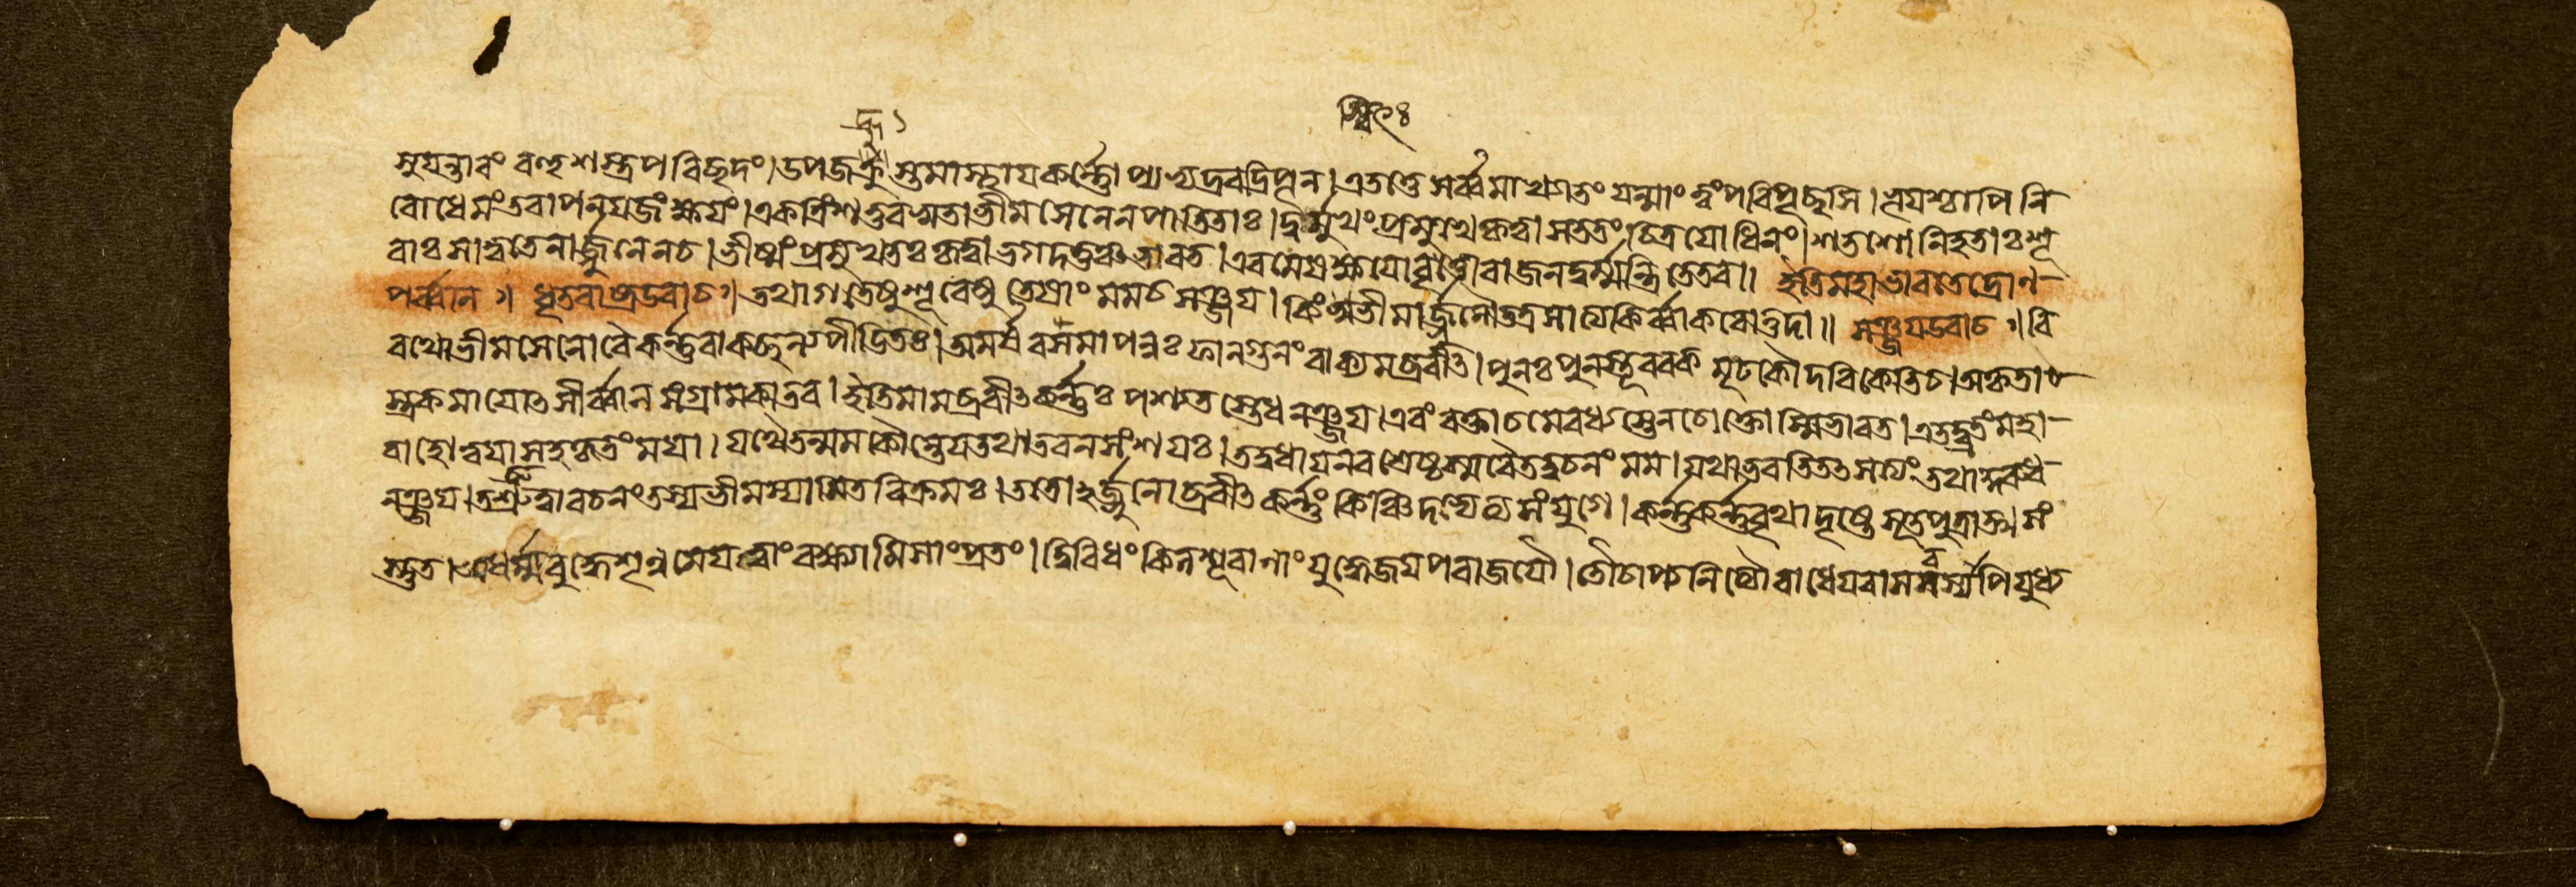 সুযন্তারং বহুশস্ত্রপরিচ্ছদং। উপজহ্রুস্তমাস্থায কর্ন্নোপ্যভ্যদ্রবদ্রিপূন। এতত্তে সর্ব্বমাখ্যাতং যন্মাং ত্বং পরিপৃচ্ছসি। ভূযশ্চাপি নি
বোধেমং তবাপনযজং ক্ষযং। একত্রিংশত্তব সুতা ভীমসেনেন পাতিতাঃ। দুর্ম্মুখং প্রমুখে কৃত্বা সততং চিত্রযোধিনং। শতশো নিহতাঃ শূ
রাঃ সাত্বতেনার্জ্জুনেন চ। ভীষ্মং প্রমুখতঃ কৃত্বা ভগদত্তঞ্চ ভারত। এবমেষ ক্ষযো বৃত্তো রাজন দুর্ম্মন্ত্রিতে তব॥ ইতি মহাভারতে দ্রোণ
পর্ব্বনি। ধৃতরাষ্ট্র উবাচ। তথাগতেষু শূরেষু তেষাং মম চ সঞ্জয। কিং ভীমার্জ্জুনৌ তত্র সাত্যকির্ব্বাকরোত্তদা॥ সঞ্জয উবাচ। বি
রথো ভীমসেনো বৈ কর্ন্নবাক্ছল্যপীডিতঃ। অমর্ষবসমাপন্নঃ ফাল্গুনং বাক্যমব্রবীৎ। পুনঃ পুনস্তূবরক মূঢকৌদরিকেতি চ। অকৃতা
স্ত্রকমাযোৎসীর্ব্বাল সংগ্রামকাতর। ইতি মামব্রবীৎ কর্ন্নঃ পশ্যতস্তে ধনঞ্জয। এবং বক্তা চ মে বধ্যস্তেন চোক্তোস্মি ভারত। এতদ্ব্রতং মহা
বাহো ত্বযা সহ কৃতং মযা। যথৈতন্মম কৌন্তেয তথা তব ন সংশযঃ। তদ্বধায নরশ্রেষ্ঠ স্মরৈতদ্বচনং মম। যথা ভবতি তৎসত্যং তথা কুরু ধ
নঞ্জয। তৎশ্রুত্বা বচনং তস্য ভীমস্যামিতবিক্রমঃ। ততোর্জ্জুনোব্রবীৎ কর্ন্নং কিঞ্চিদভ্যেত্য সংযুগে। কর্ন্ন কর্ন্ন বৃথাদৃষ্টে সূতপুত্রাত্মসং
স্তুত। অধর্ম্মবুদ্ধে শৃণু মে যত্ত্বাং বক্ষ্যামি সাংপ্রতং। দ্বিবিধং কর্ম্ম শূরাণাং যুদ্ধে জযপরাজযৌ। তৌ চাপ্যনিত্যৌ রাধেয বাসবস্যাপি যুধ্য